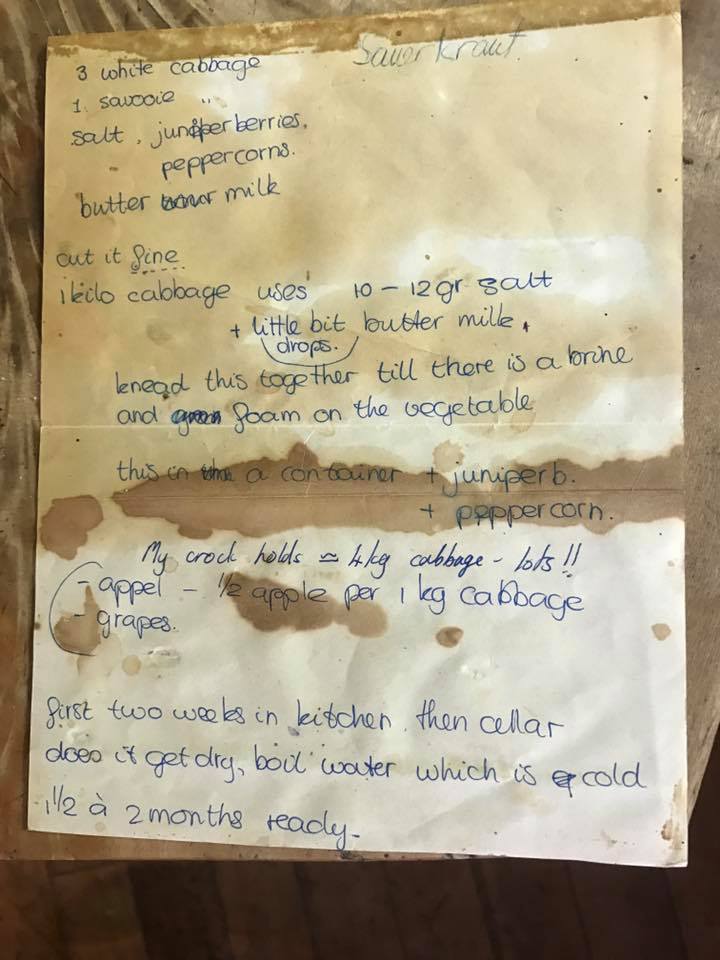 Sauerkraut
3 white cabbage
1 savooie "
salt, juniperberries,
peppercorns.
butter milk
cut it fine
1 kilo cabbage uses 10 – 12 gr salt
+ little bit butter milk.
drops.
knead this together till there is a brine
and foam on the vegetable
this in a container + juniperb.
+ peppercorn.
My crock holds ≃ 4kg cabbage - lots!!
- appel – 1/2 apple per 1 kg cabbage
- grapes.
first two weeks in kitchen, then cellar
does it get dry, boil water which is cold
1 1/2 à 2 months ready-